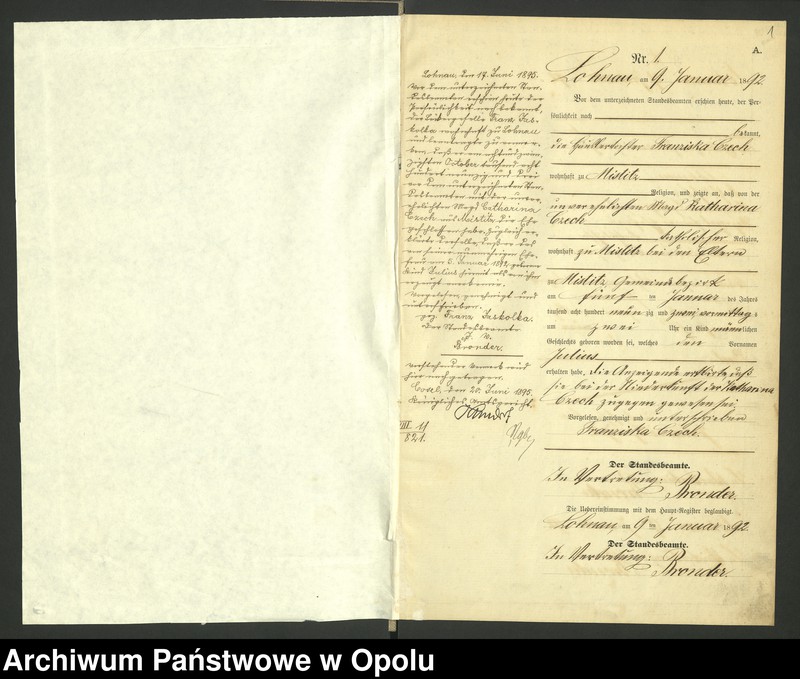 1
A.
Nr. 1.
Lohnau am 9. Januar 1892.
Vor dem unterzeichneten Standesbeamten erschien heute, der Per-
sönlichkeit nach
bekannt,
die Häuslertochter Franziska Czech
wohnhaft zu Mistitz
Religion, und zeigte an, daß von der
unverehelichten Magd Katharina
Czech
katholischer Religion,
wohnhaft zu Mistitz bei den Eltern
zu Mistitz Gemeindebezirk
am fünf ten Januar des Jahres
tausend acht hundert neun zig und zwei vormittags
um zwei Uhr ein Kind männlichen
Geschlechts geboren worden sei, welches den Vornamen
Julius
erhalten habe. Die Anzeigende erklärte daß
sie bei der Niederkunft der Katharina
Czech zugegen gewesen sei.
Vorgelesen, genehmigt und unterschrieben
Franziska Czech.
Der Standesbeamte.
In Vertretung:
Bronder.
Die Uebereinstimmung mit dem Haupt-Register beglaubigt.
Lohnau, am 9 ten Januar 1892.
Der Standesbeamte.
In Vertretung:
Bronder.
Lohnau, den 17. Juni 1895.
Vor dem unterzeichneten Stan-
desbeamten erschien heute der
Persönlichkeit nach bekannt,
Franz Jas-
kolka wohnhaft zu Lohnau
und beantragte zu vermer-
ken, daß er am acht und zwan-
zigsten October tausend acht
hundert neunzig und drei
vor dem unterzeichneten Stan-
desbeamten mit der unver-
ehelichten Magd Catharina
Czech aus Mistitz die Ehe
geschlossen habe. Zugleich er-
klärte derselbe, daß er das
von seiner nunmehrigen Ehe-
frau am 5. Januar 1892 geborene
Kind Julius hiermit als von ihm
erzeugt anerkenne.
Vorgelesen, genehmigt und
unterschrieben.
gez. Franz Jaskolka.
Der Standesbeamte.
I. V.
Bronder.
Vorstehender Vermerk wird
hier nachgetragen.
Cosel, den 20. Juni 1895.
Königliches Amtsgericht.
VIII. 11
821.
Archiwum Państwowe w Opolu